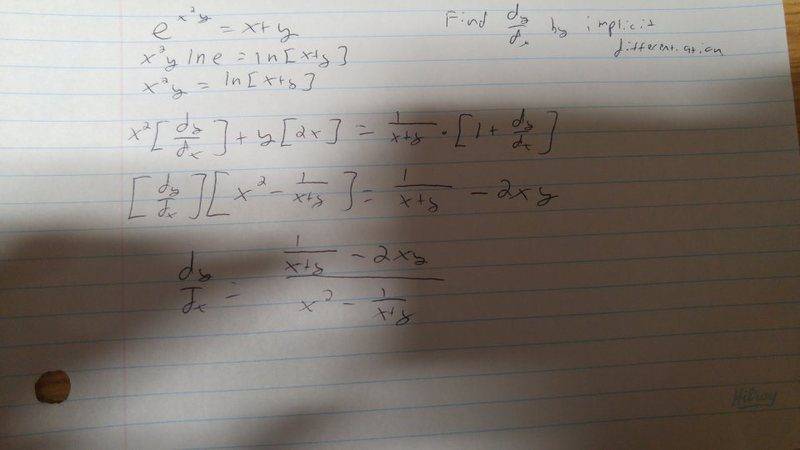 e^{x²y} = x+y
Find dy/dx by implicit
differentiation
x²y ln e = ln[x+y]
x²y = ln[x+y]
x²[dy/dx] + y[2x] = 1/(x+y) · [1 + dy/dx]
[dy/dx][x² - 1/(x+y)] = 1/(x+y) - 2xy
dy/dx = (1/(x+y) - 2xy)/(x² - 1/(x+y))
Hilroy